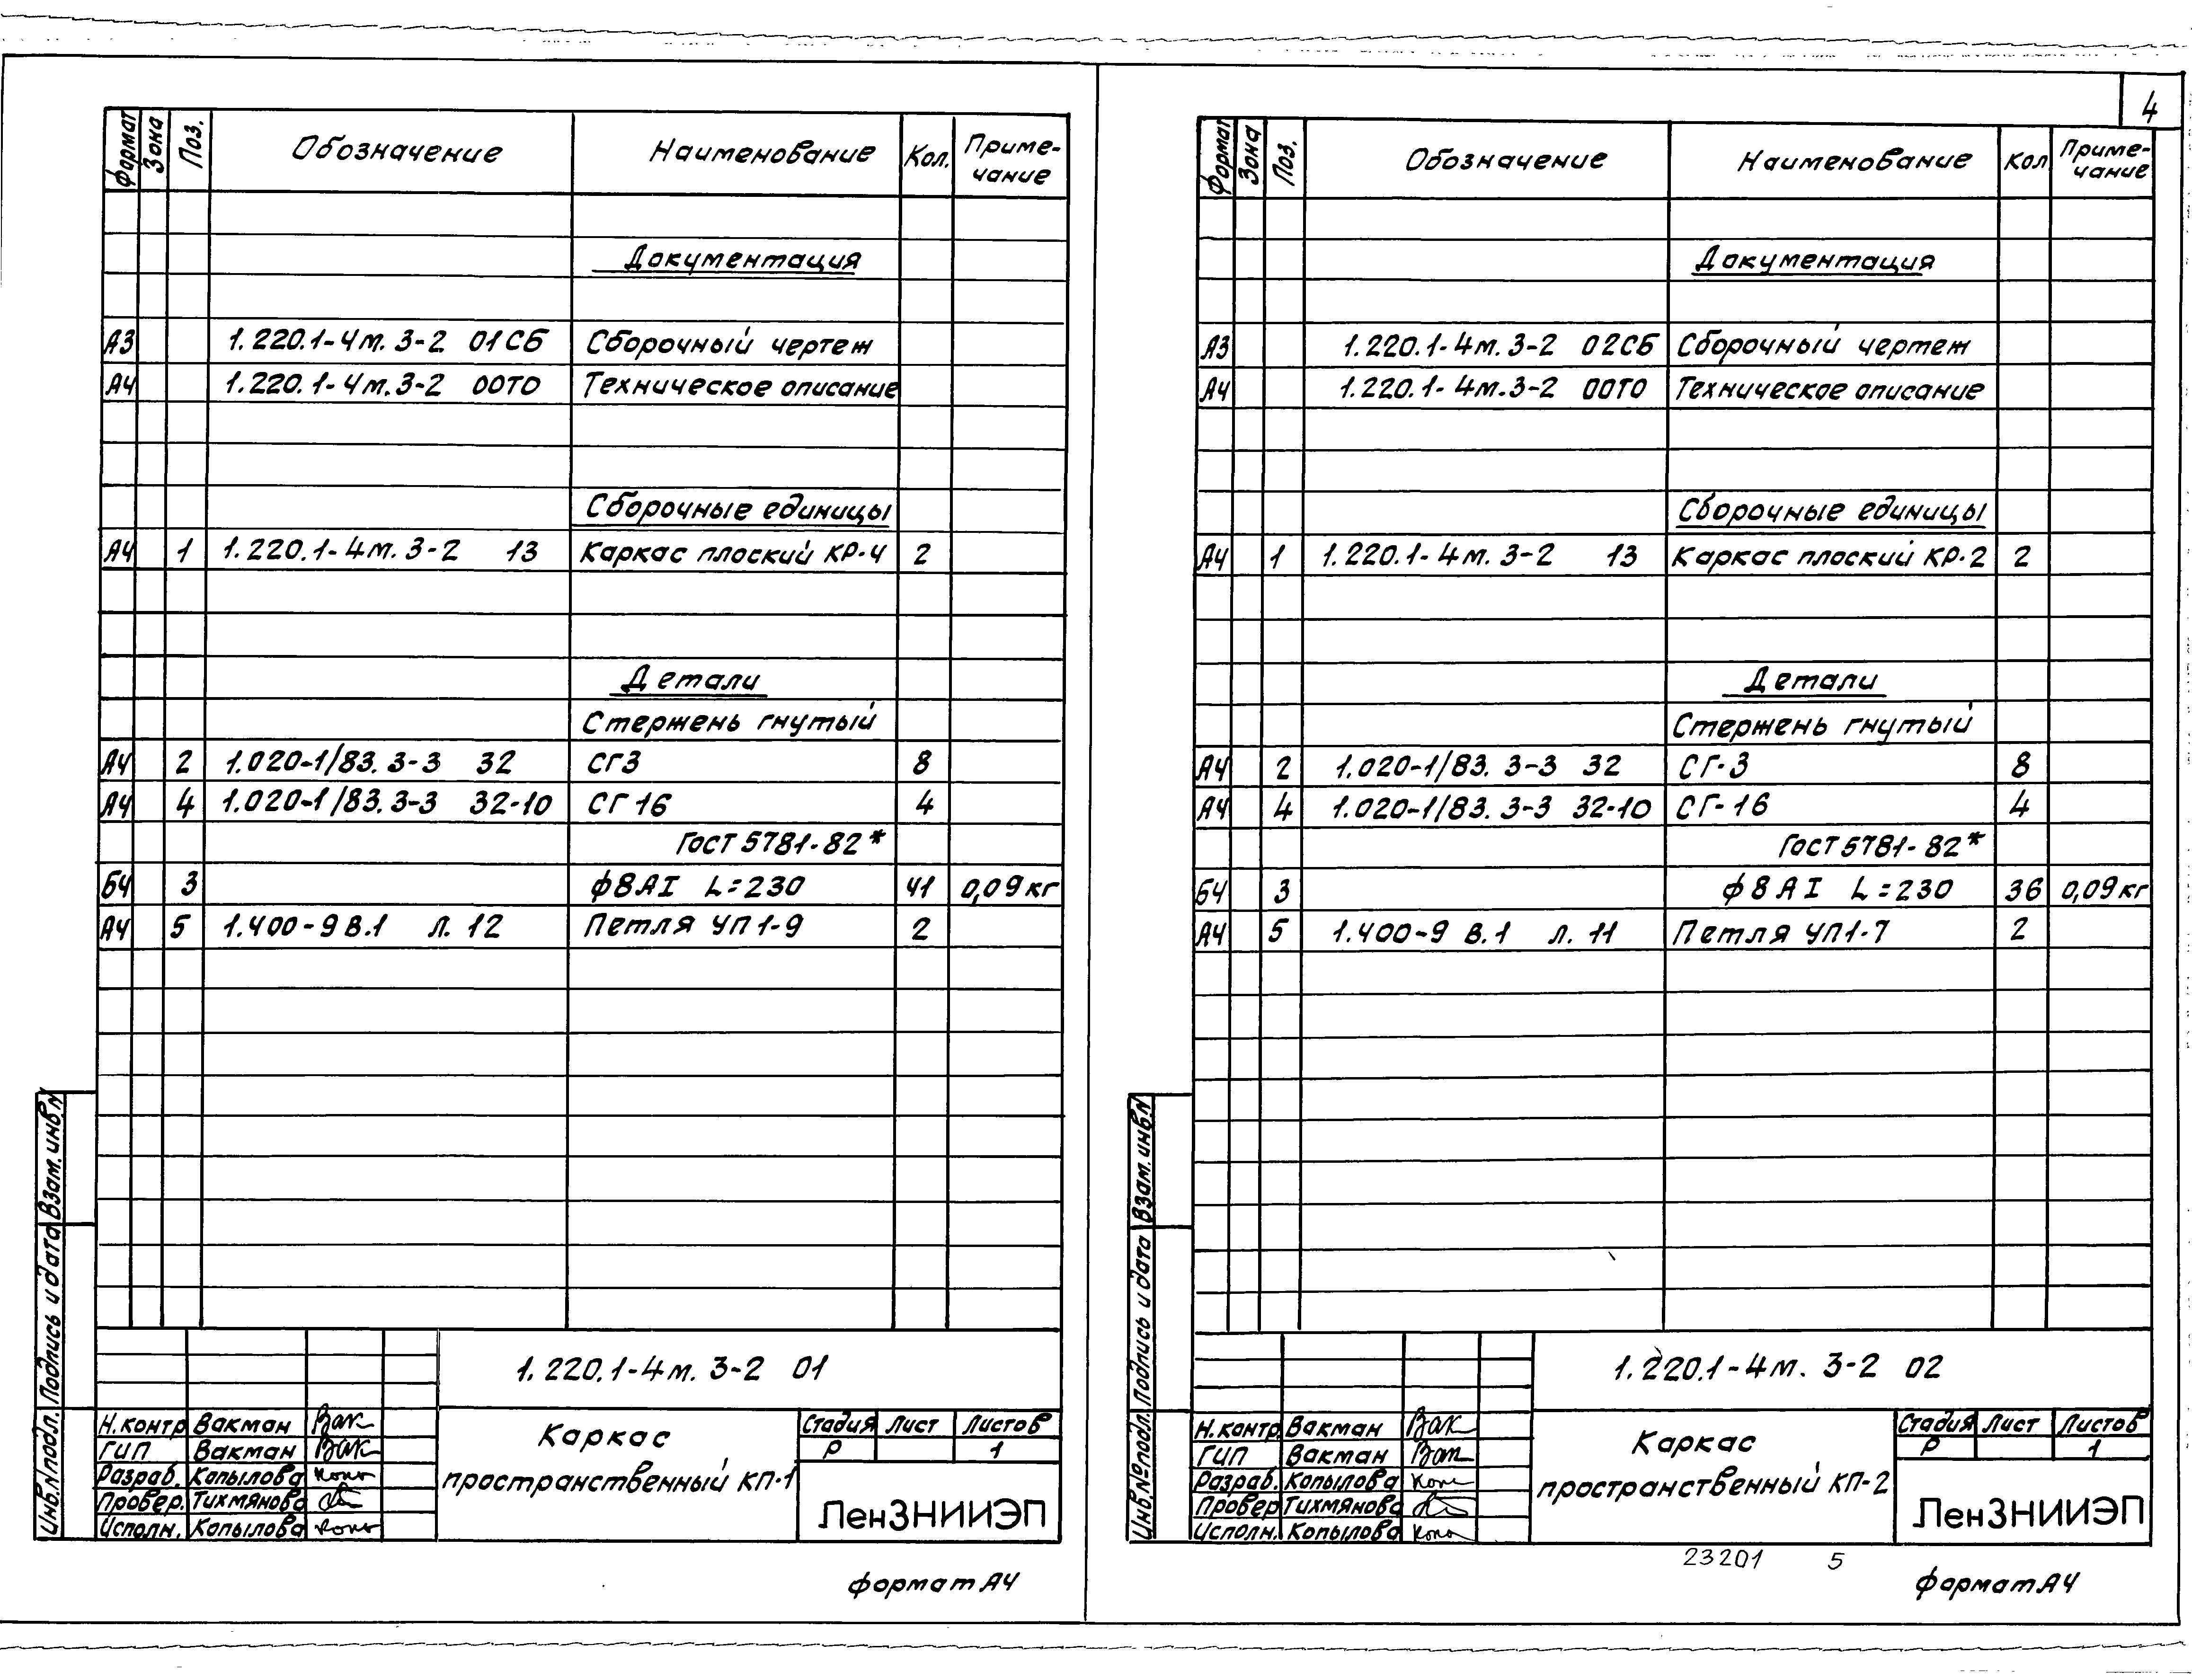 Формат Зона Поз. Обозначение Наименование Кол. Приме-
чание
Документация
А3 1.220.1-4м.3-2 01СБ Сборочный чертеж
А4 1.220.1-4м.3-2 00ТО Техническое описание
Сборочные единицы
А4 1 1.220.1-4м.3-2 13 Каркас плоский КР-4 2
Детали
Стержень гнутый
А4 2 1.020-1/83.3-3 32 СГ3 8
А4 4 1.020-1/83.3-3 32-10 СГ16 4
Гост 5781-82*
БЧ 3 ф8АI L=230 41 0,09кг
А4 5 1.400-9 В.1 л.12 Петля УП1-9 2
Инв.№подл. Подпись и дата Взам.инв.№
1.220.1-4м.3-2 01
Н.контр Вакман Вак
ГИП Вакман Вак
Разраб. Копылова Копы
Провер. Тихмянова
Исполн. Копылова Копы
Каркас
пространственный КП-1
Стадия Лист Листов
Р 1
ЛенЗНИИЭП
формат А4
4
Формат Зона Поз. Обозначение Наименование Кол Приме-
чание
Документация
А3 1.220.1-4м.3-2 02СБ Сборочный чертеж
А4 1.220.1-4м.3-2 00ТО Техническое описание
Сборочные единицы
А4 1 1.220.1-4м.3-2 13 Каркас плоский КР-2 2
Детали
Стержень гнутый
А4 2 1.020-1/83.3-3 32 СГ-3 8
А4 4 1.020-1/83.3-3 32-10 СГ-16 4
Гост 5781-82*
БЧ 3 ф8АI L=230 36 0,09кг
А4 5 1.400-9 В.1 л.11 Петля УП1-7 2
Инв.№подл. Подпись и дата Взам.инв.№
1.220.1-4м.3-2 02
Н.контр. Вакман Вак
ГИП Вакман Вак
Разраб. Копылова Копы
Провер Тихмянова
Исполн. Копылова Копы
Каркас
пространственный КП-2
Стадия Лист Листов
Р 1
ЛенЗНИИЭП
23201 5
формат А4